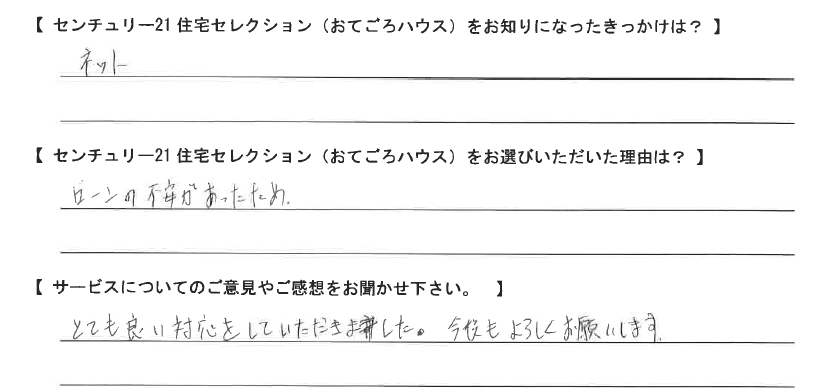 【 センチュリー21 住宅セレクション（おてごろハウス）をお知りになったきっかけは？ 】
ネット
【 センチュリー21 住宅セレクション（おてごろハウス）をお選びいただいた理由は？ 】
ローンの不安があったため.
【 サービスについてのご意見やご感想をお聞かせ下さい。 】
とても良い対応をしていただきました。今後もよろしくお願いします.